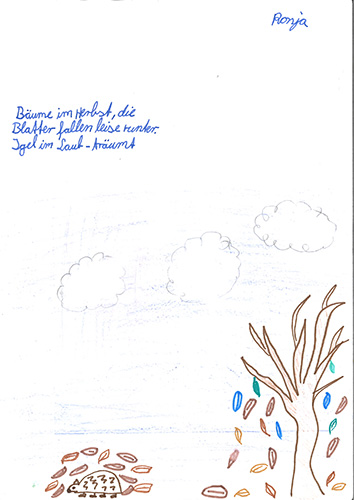 Ronja
Bäume im Herbst, die
Blätter fallen leise runter.
Igel im Laub träumt